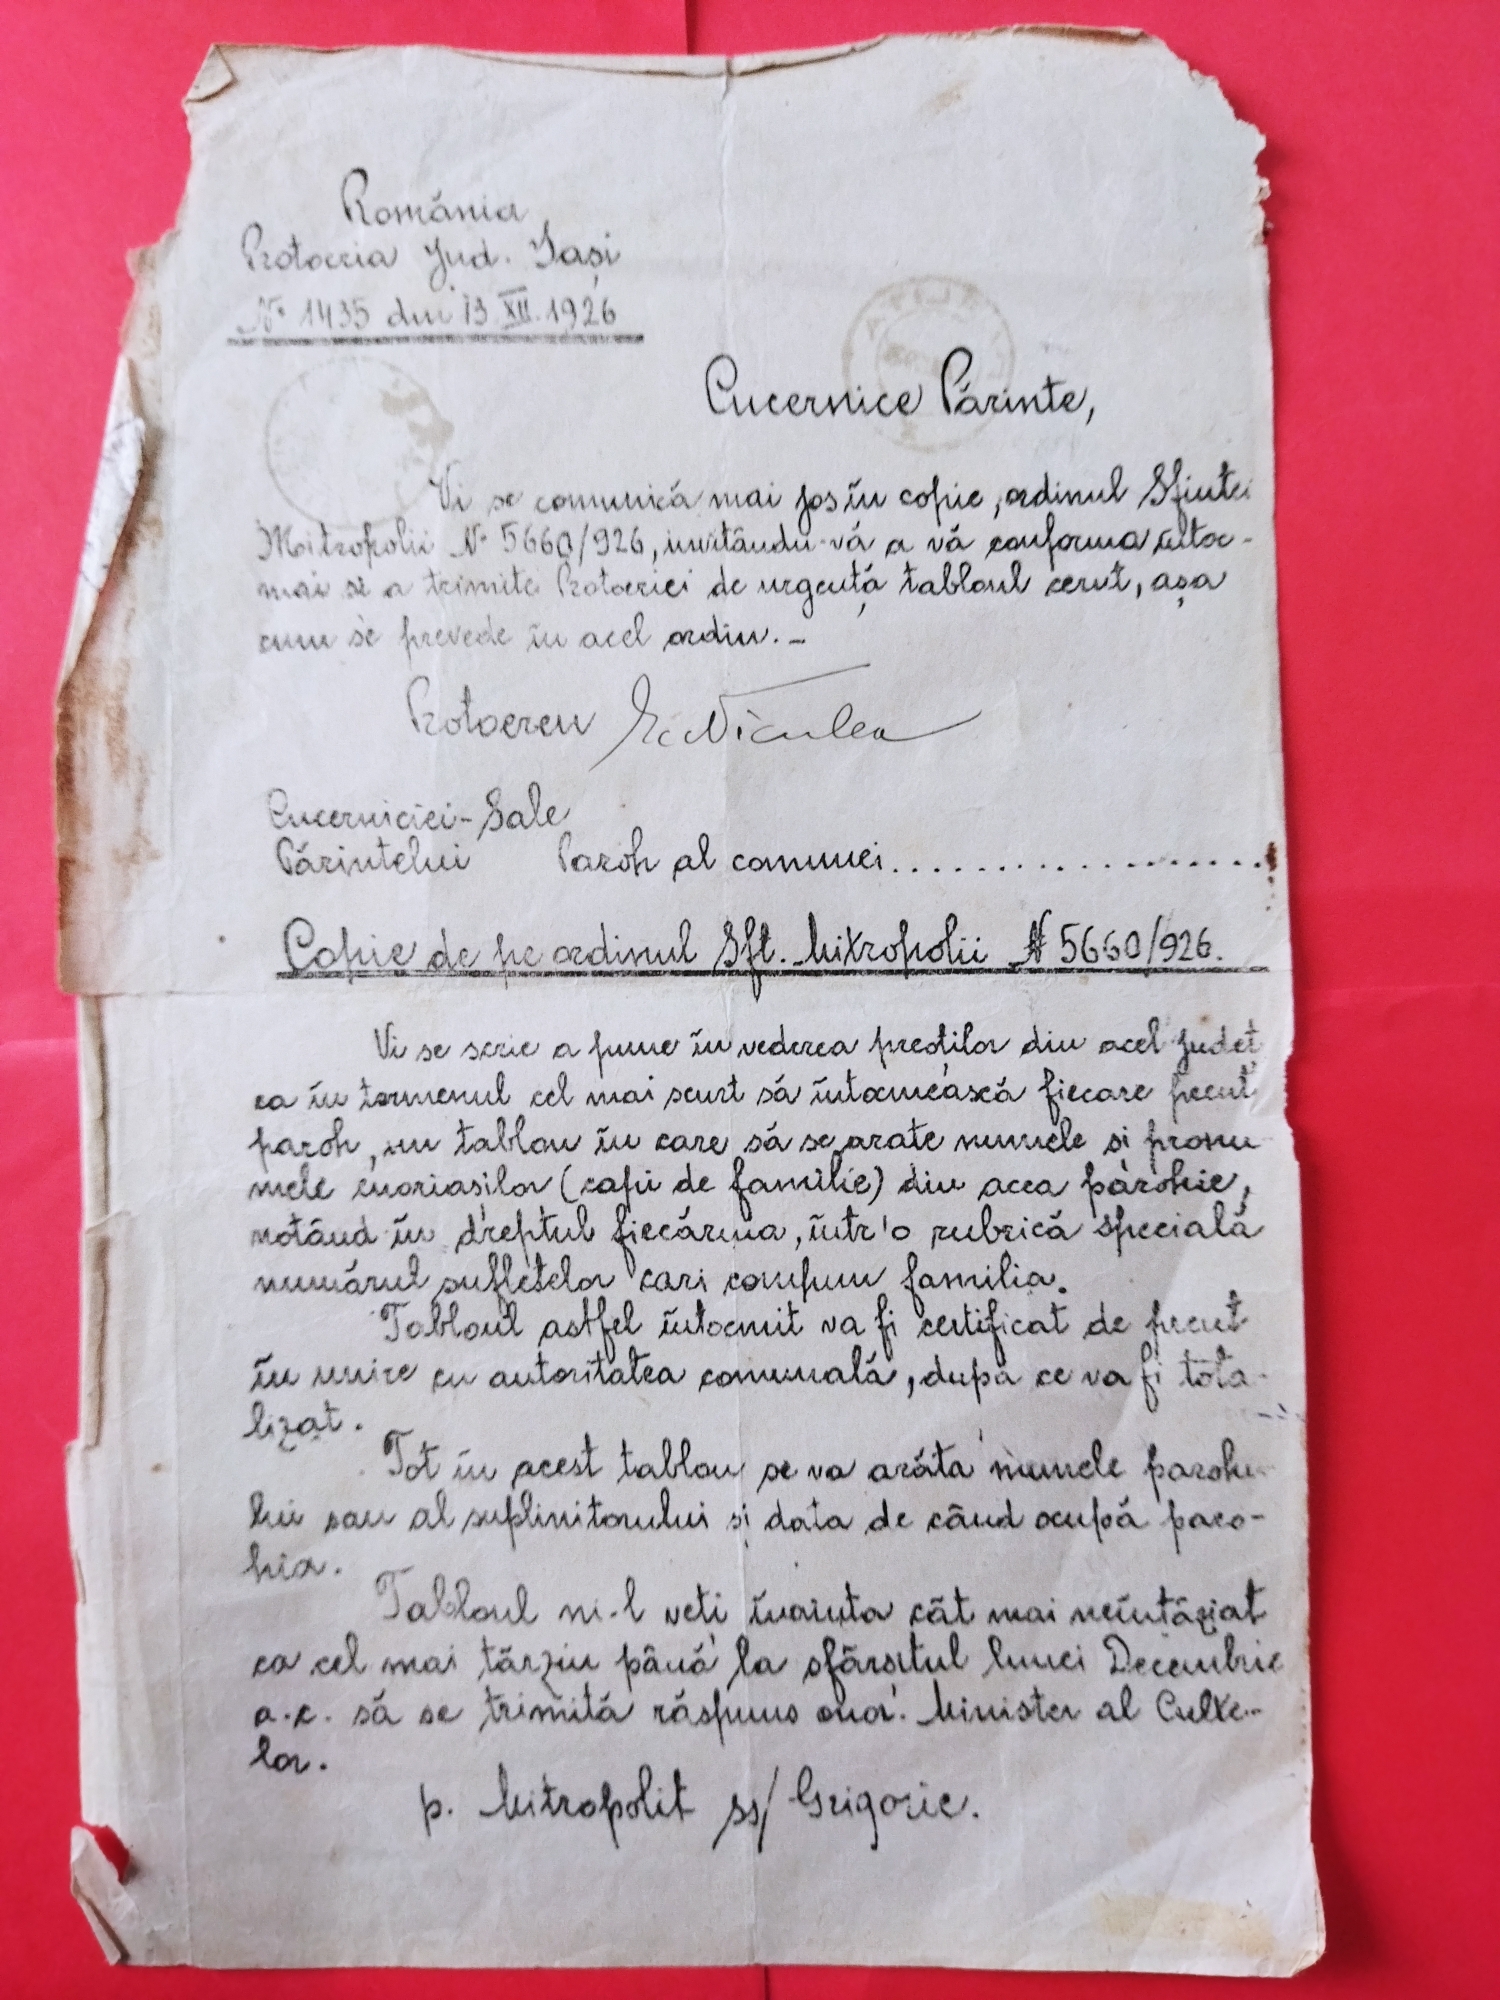 România
Protoeria Jud. Iași
No 1435 din 13 XII. 1926
Cucernice Părinte,
Vi se comunică mai jos în copie, ordinul Sfintei
Mitropolii No 5660/926, invitându-vă a vă conforma întoc-
mai și a trimite Protoeriei de urgență tabloul cerut, așa
cum se prevede în acel ordin. -
Protoereu Ec Niculea
Cucerniciei-Sale
Părintelui Paroh al comunei..................
Copie de pe ordinul Sft. Mitropolii No 5660/926.
Vi se scrie a pune în vederea preoților din acel Județ
ca în termenul cel mai scurt să întocmească fiecare preut
paroh, un tablou în care să se arate numele și pronu
mele enoriașilor (capii de familie) din acea parohie,
notând în dreptul fiecăruia, într'o rubrică specială
numărul sufletelor cari compun familia.
Tabloul astfel întocmit va fi certificat de preut
în unire cu autoritatea comunală, după ce va fi tota-
lizat.
Tot în acest tablou se va arăta numele parohu-
lui sau al suplinitorului și data de când ocupă paro-
hia.
Tabloul ni-l veți înainta cât mai neîntârziat
ca cel mai târziu până la sfârșitul lunei Decembrie
a.c. să se trimită răspuns onor. Minister al Culte-
lor.
p. Mitropolit ss/ Grigorie.